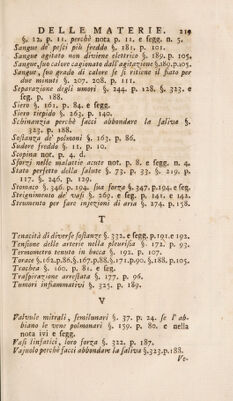 DELLE MATERIE. 219
§. 12. p. 11. perchè nota p. 11. e segg. n. 5.
Sangue de' pesci più freddo §. 181. p. 101.
Sangue agitato non diviene elettrico §. 189. p. 105.
Sangue, suo calore cagionato dall'agitazione §.189.p.105.
Sangue, suo grado di calore se si ritiene il fiato per
due minuti §. 207. 208. p. 111.
Separazione degli umori §. 244. p. 128. §. 323. e
seg. p. 188.
Siero §. 161. p. 84. e segg.
Siero tiepido §. 263. p. 140.
Schinanzia perchè facci abbondare la saliva §.
323. p. 188.
Sostanza de' polmoni §. 163. p. 86.
Sudore freddo §. 11. p. 10.
Scopina not. p. 4. d.
Sforzj nelle malattie acute not. p. 8. e segg. n. 4.
Stato perfetto della salute §. 73. p. 33. §. 219. p.
117. §. 246. p. 129.
Stomaco §. 346. p. 194. sua forza §. 347. p.194. e seg.
Strignimento de' vasi §. 269. e seg. p. 141. e 142.
Strumento per fare injezioni di aria §. 274. p. 158.
T
Tenacità di diverse sostanze §. 332. e segg. p.191. e 192.
Tensione delle arterie nella pleurisia §. 172. p. 93.
Termometro tenuto in bocca §. 192. p. 107.
Torace §.162.p.86.§.167.p.88.§.171.p.90.§.188.p.105.
Trachea §. 160. p. 81. e seg.
Traspirazione arrestata §. 177. p. 96.
Tumori infiammativi §. 325. p. 189.
V
Valvule mitrali, semilunari §. 37. p. 24. se l'ab-
biano le vene polmonari §. 159. p. 80. e nella
nota ivi e segg.
Vasi linfatici, loro forza §. 322. p. 187.
Vajuolo perchè facci abbondare la saliva §.323.p.188.
Ve-